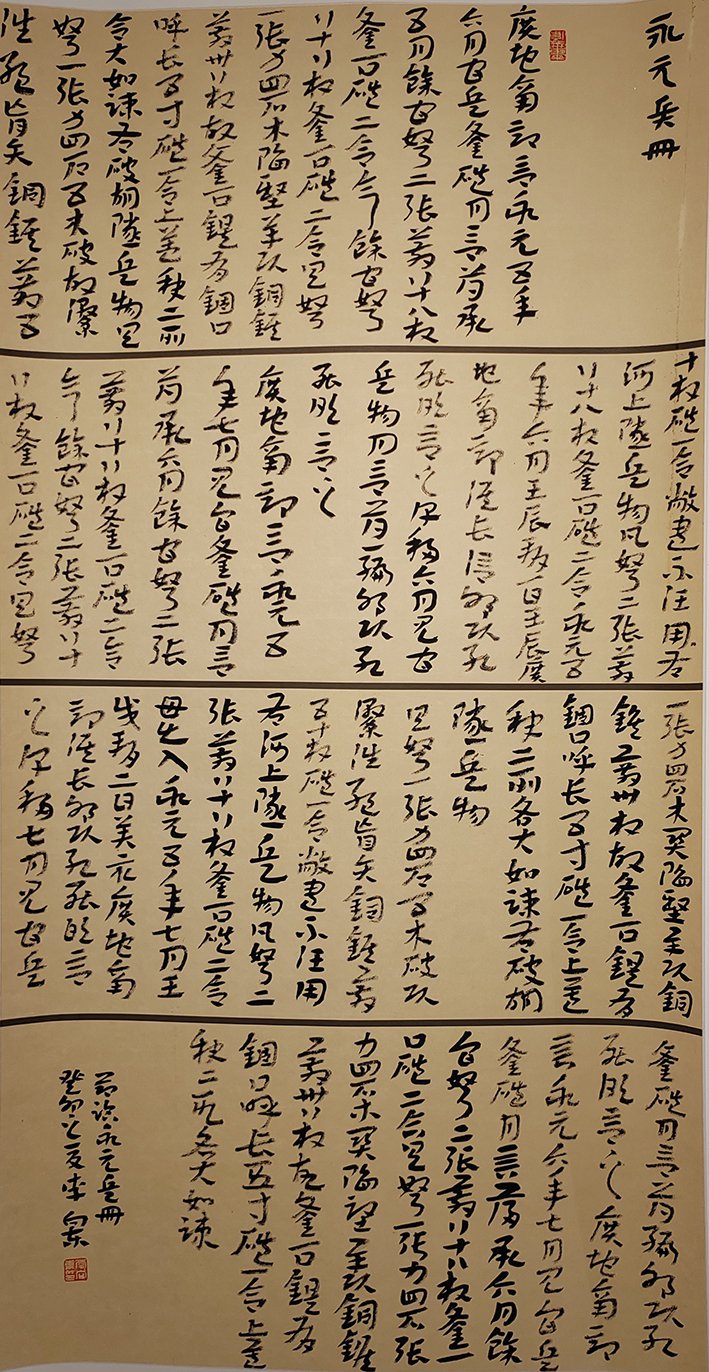 永元兵冊
廣地南部言永元五年
六月官兵釜磑月言簿承
五月餘官弩二張箭八十八枚
釜一口磑二合今餘官弩
八十八枚釜一口磑二合具弩
一張力四石木陷堅羊頭銅鍭
箭卅八枚故釜一口鍉有錮口
呼長五寸磑一合上蓋缺二所
各大如疎右破胡隧兵物具
弩一張力四石五木破故繫
往絕盲矢銅鍭箭五
十枚磑一合敝盡不任用右
河上隧兵物凡弩二張箭
八十八枚釜一口磑二合永元五
年六月壬辰朔一日壬辰廣
地南部候長信叩頭死
罪敢言之謹移六月見官
兵物月言簿一編叩頭死
罪敢言之
廣地南部言永元五
年七月見官釜磑月言
簿承六月餘官弩二張
箭八十八枚釜一口磑二合
今餘官弩二張箭八十
八枚釜一口磑二合具弩
一張力四石木關陷堅羊頭銅
鍭箭卅八枚故釜一口鍉有
錮口呼長五寸磑一合上蓋
缺二所各大如疎右破胡
隧兵物
具弩一張力四石五木破故
繫往絕盲矢銅鍭箭
五十枚磑一合敝盡不任用
右河上隧兵物凡弩二
張箭八十八枚釜一口磑二合
毋出入永元五年七月壬
戌朔二日癸亥廣地南
部候長叩頭死罪敢言
之謹移七月見官兵
釜磑月言簿編叩頭死
罪敢言之廣地南部
言永元六年七月見官兵
釜磑月言簿承六月餘
官弩二張箭八十八枚釜一
口磑二合具弩一張力四石張
力四石木關陷堅羊頭銅鍭
箭卅八枚故釜一口鍉有
錮口呼長五寸磑一合上蓋
缺二所各大如疎
節臨永元兵冊
癸卯之夏李